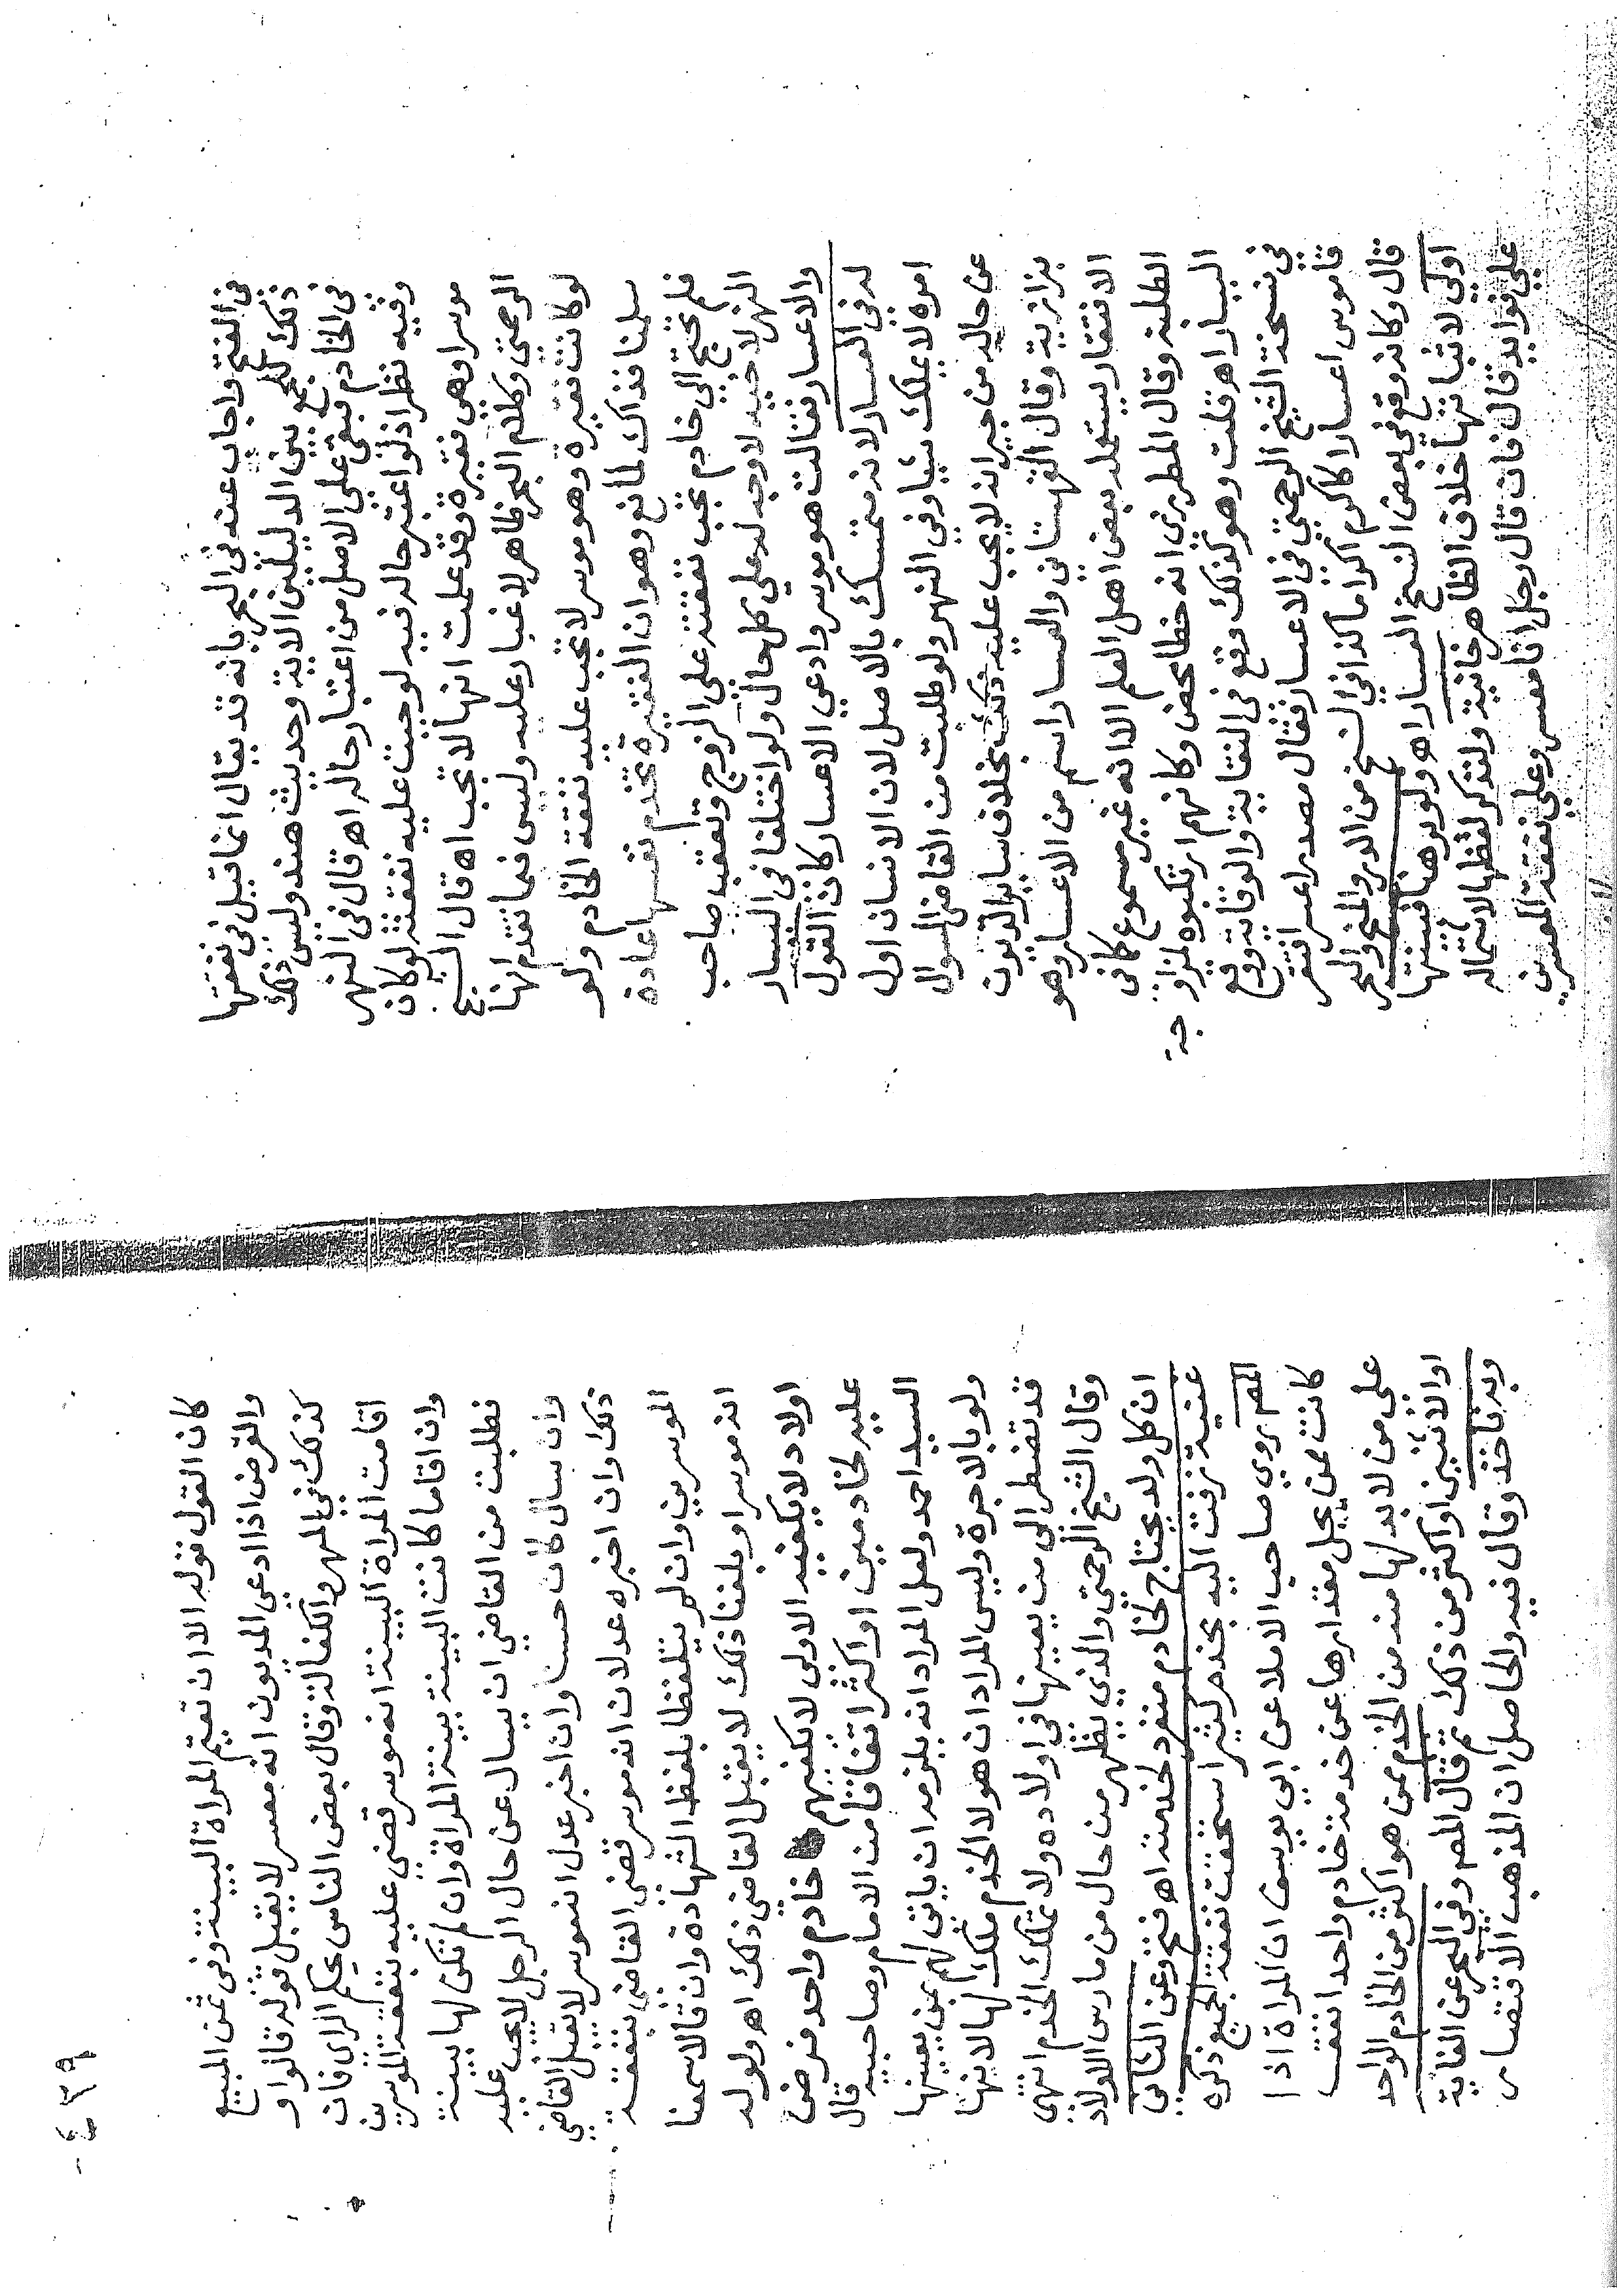 في الفتح واجاب عنه في البحر بانه قد يقال انما قيل في نفقتها
ذلك للجمع بين الدليلين الاية وحديث هند وليس ذلك
في الخادم فبقي علي الاصل من اعتبار حاله اه قال في النهر
وفيه نظر اذ لو اعتبر حاله فيه لوجبت عليه نفقته لو كان
موسرا وهي فقيرة وقد علمت انها لا تجب اه قال الشيخ
الرحمتي وكلام البحر ظاهر لا غبار عليه وليس فيما تقدم انها
لو كانت فقيرة وهو موسر لا تجب عليه نفقة الخادم ولو
سلمنا فذاك لمانع وهو ان الفقيرة تخدم نفسها عادة
فلم تحتج الي خادم تجب نفقته علي الزوج وتعقبه صاحب
النهر لاخيه لا وجه له علي كل حال ولو اختلفا في اليسار
والاعسار فقالت هو موسر وادعي الاعسار كان القول
له في العسار لانه متمسك بالاصل لان الانسان اول
امره لا يملك شيا وفي النهر ولو طلبت من القاضي السوال
عن حاله من جيرانه لا يجب عليه ذلك بخلاف ساير الديون
بزازية وقال القهستاني والعسار اسم من الاعسار وهو
الافتقار يستعمله بعض اهل العلم الا انه غير مسموع كما في
الطلبة وقال المطرزي انه خطا محض وكانهم ارتكبوه لمزاوجة
اليسار اه قلت وهو كذلك وقع في النقاية والوقاية ووقع
في نسخة الشيخ الرحمتي في الاعسار فقال مصدر اعسر افتقر
قاموس اعسارا كاكرم اكراما كذا في النسخ من الدر والمنح والبحر
قال وكانه وقع في بعض النسخ العسار اه ولو برهنا فبينتها
اولي لاثباتها خلاف الظاهر خانية ولنذكر لفظها لاشتماله
علي فوايد قال فان قال رجل انا معسر وعلي نفقة المعسرين
٤٣٩
كان القول قوله الا ان تقيم المراة البينة وفي ثمن المبيع
والقرض اذا ادعي المديون انه معسر لا يقبل قوله قالوا و
كذلك في المهر والكفالة وقال بعض الناس يحكم الراي فان
اقامت المراة البينة انه موسر قضي عليه بنفقة الموسرين
وان اقاما كانت البينة بينة المراة وان لم تكن لها بينة
فطلبت من القاضي ان يسال عن حال الرجل لا يجب عليه
وان سال كان حسنا وان اخبر عدل انه موسر لا يقبل القاضي
ذلك وان اخبره عدلان انه موسر قضي القاضي بنفقة
الموسرين وان لم يتلفظا بلفظ الشهادة وان قالا سمعنا
انه موسر او بلغنا ذلك لا يقبل القاضي ذلك اه ولو له
اولاد لا يكفيه الاولي لا يكفيهم خادم واحد فرض
عليه لخادمين او اكثر اتفاقا من الامام وصاحبيه قال
السيد احمد ولعل المراد انه يلزمه ان ياتي لهم بمن يعينها
ولو بالاجرة وليس المراد ان هولا الخدم ملك لها لانها
قد تضطر الي من يعينها في اولاده ولا تملك الخدم انتهي
وقال الشيخ الرحمتي والذي يظهر من حال من مارس الاولاد
ان كل ولد يحتاج لخادم منفرد لخدمته اه فتح وعن الثاني
غنية زفت اليه بخدم كثير استحقت نفقة الجميع ذكره
المص روي صاحب الاملا عن ابي يوسف ان المراة اذا
كانت ممن يجل مقدارها عن خدمة خادم واحد انفقت
علي من لابد لها منه من الخدم ممن هو اكثر من الخادم الواحد
او الاثنين او اكثر من ذلك ثم قال المص وفي البحر عن الغاية
وبه ناخذ وقال فيه والحاصل ان المذهب الاقتصار